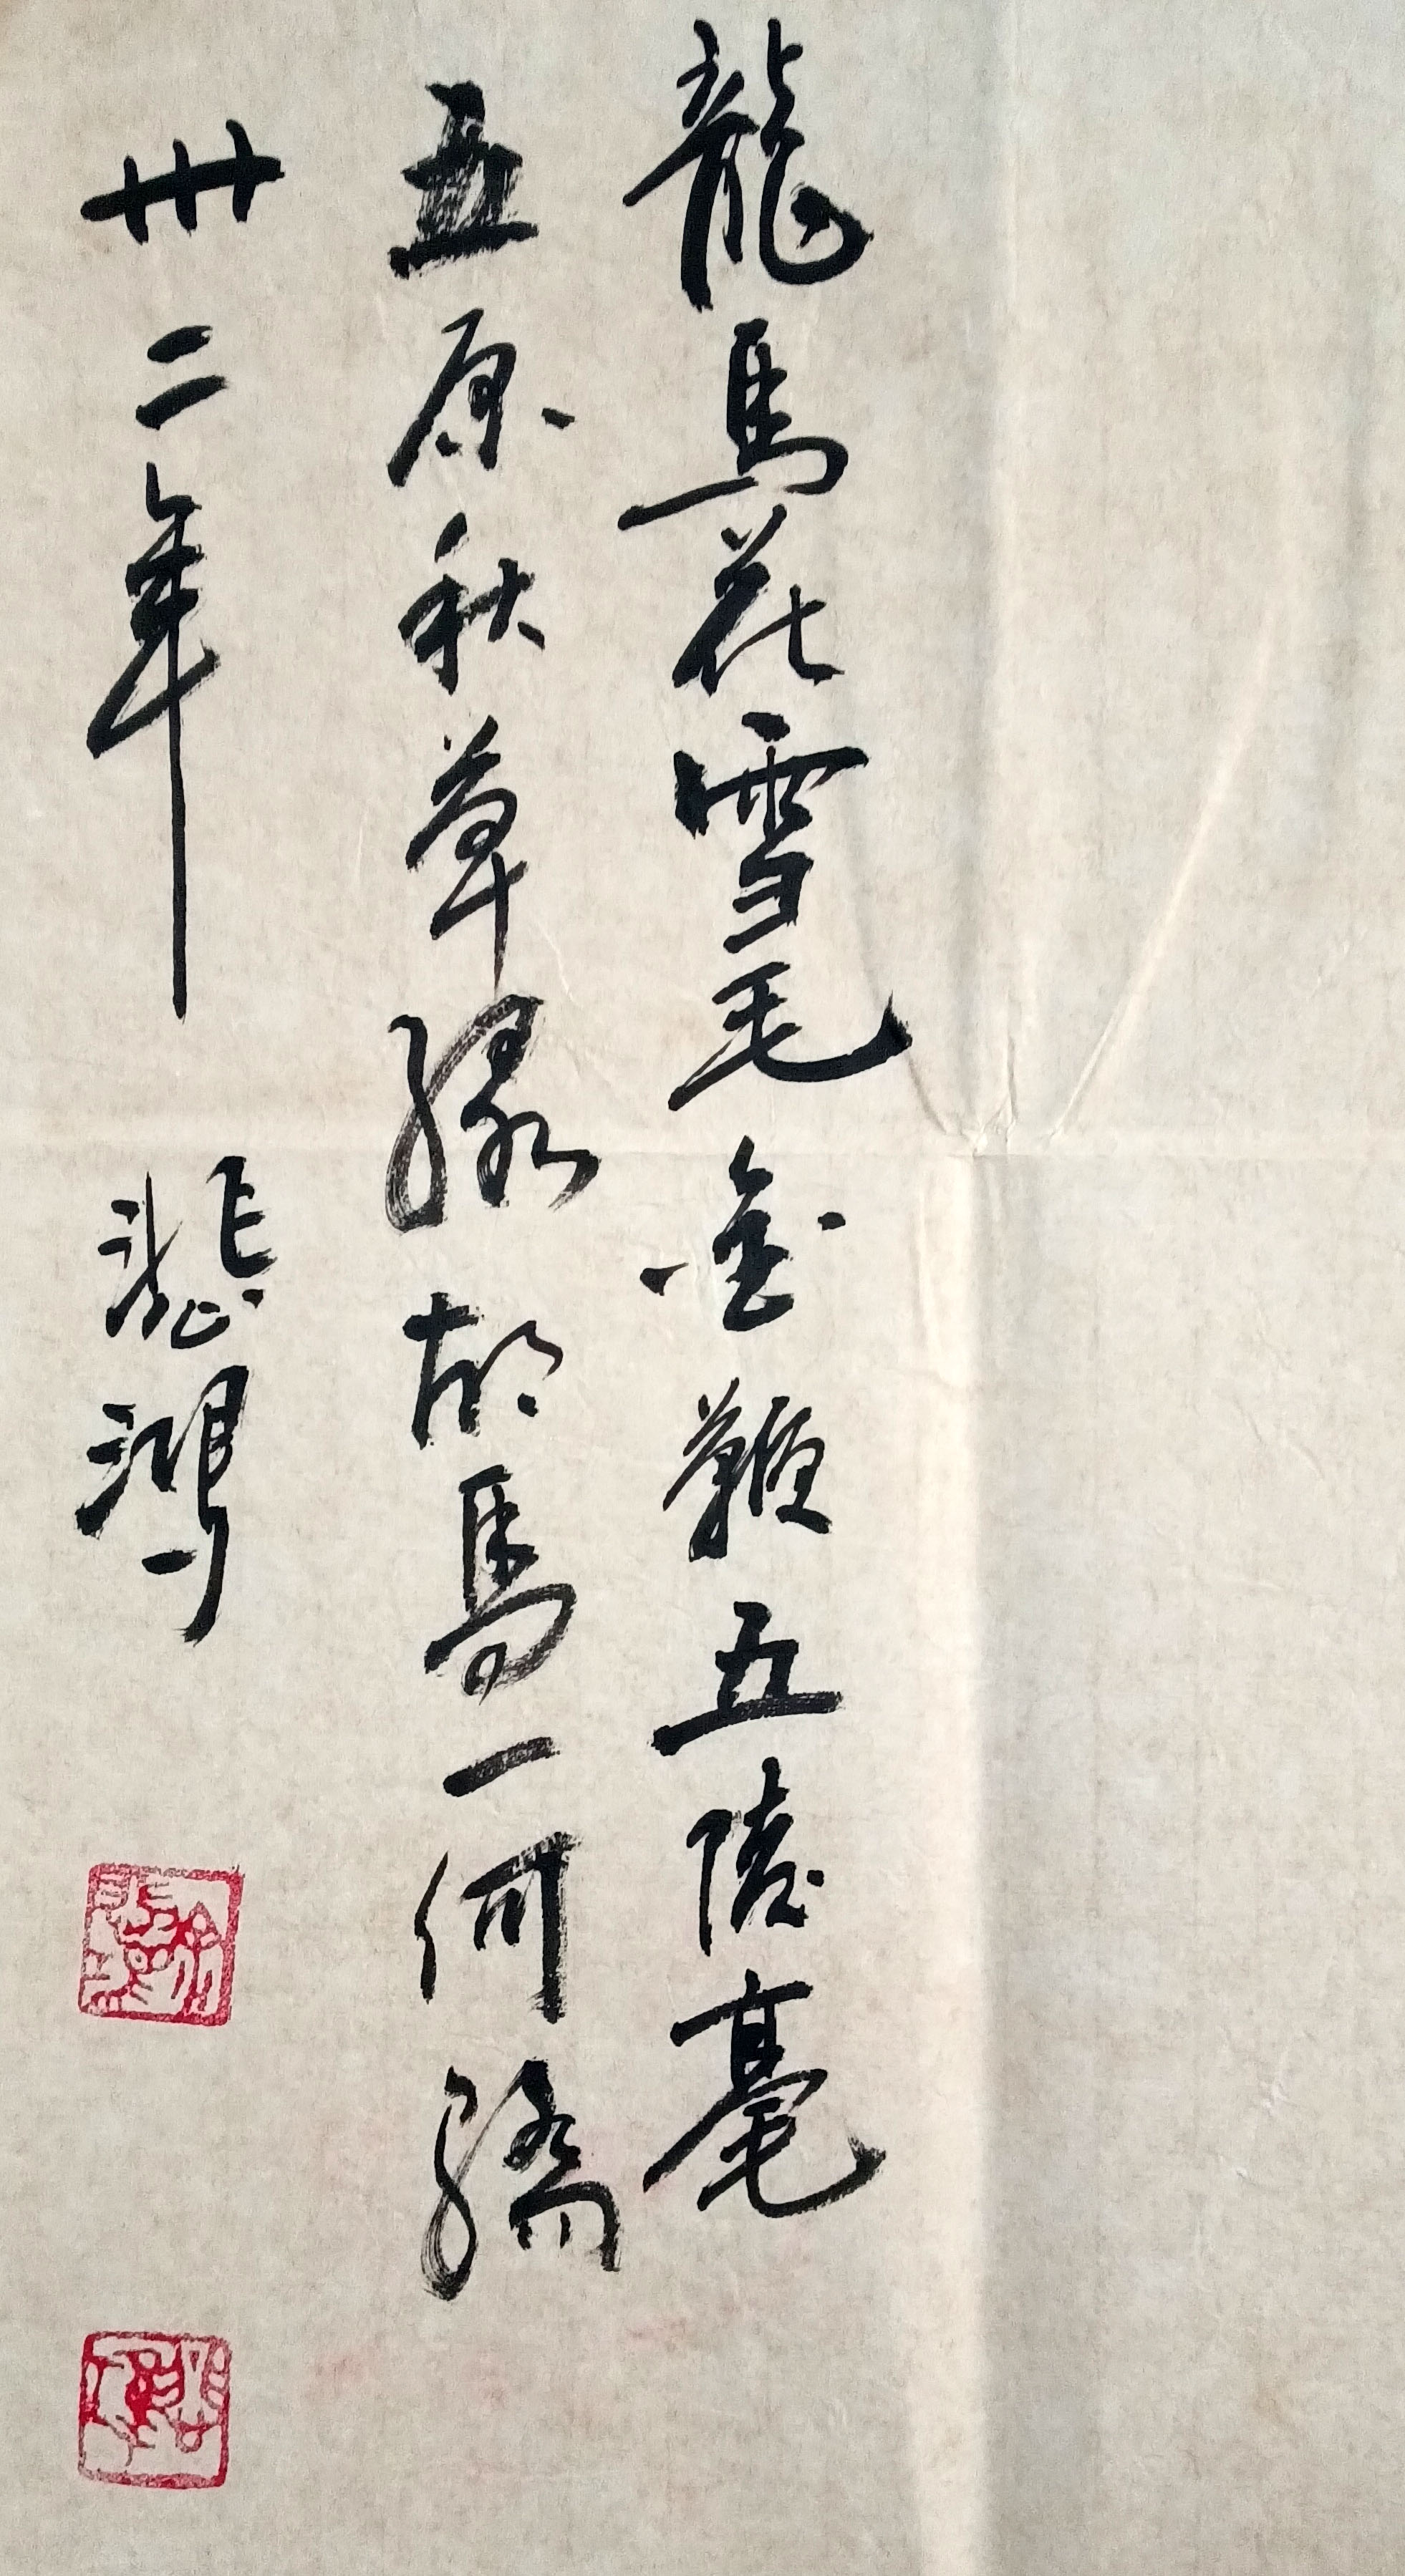 龍馬花雪毛金鞭五陵毫
五原秋草綠胡馬一何驕
卅二年 悲鴻